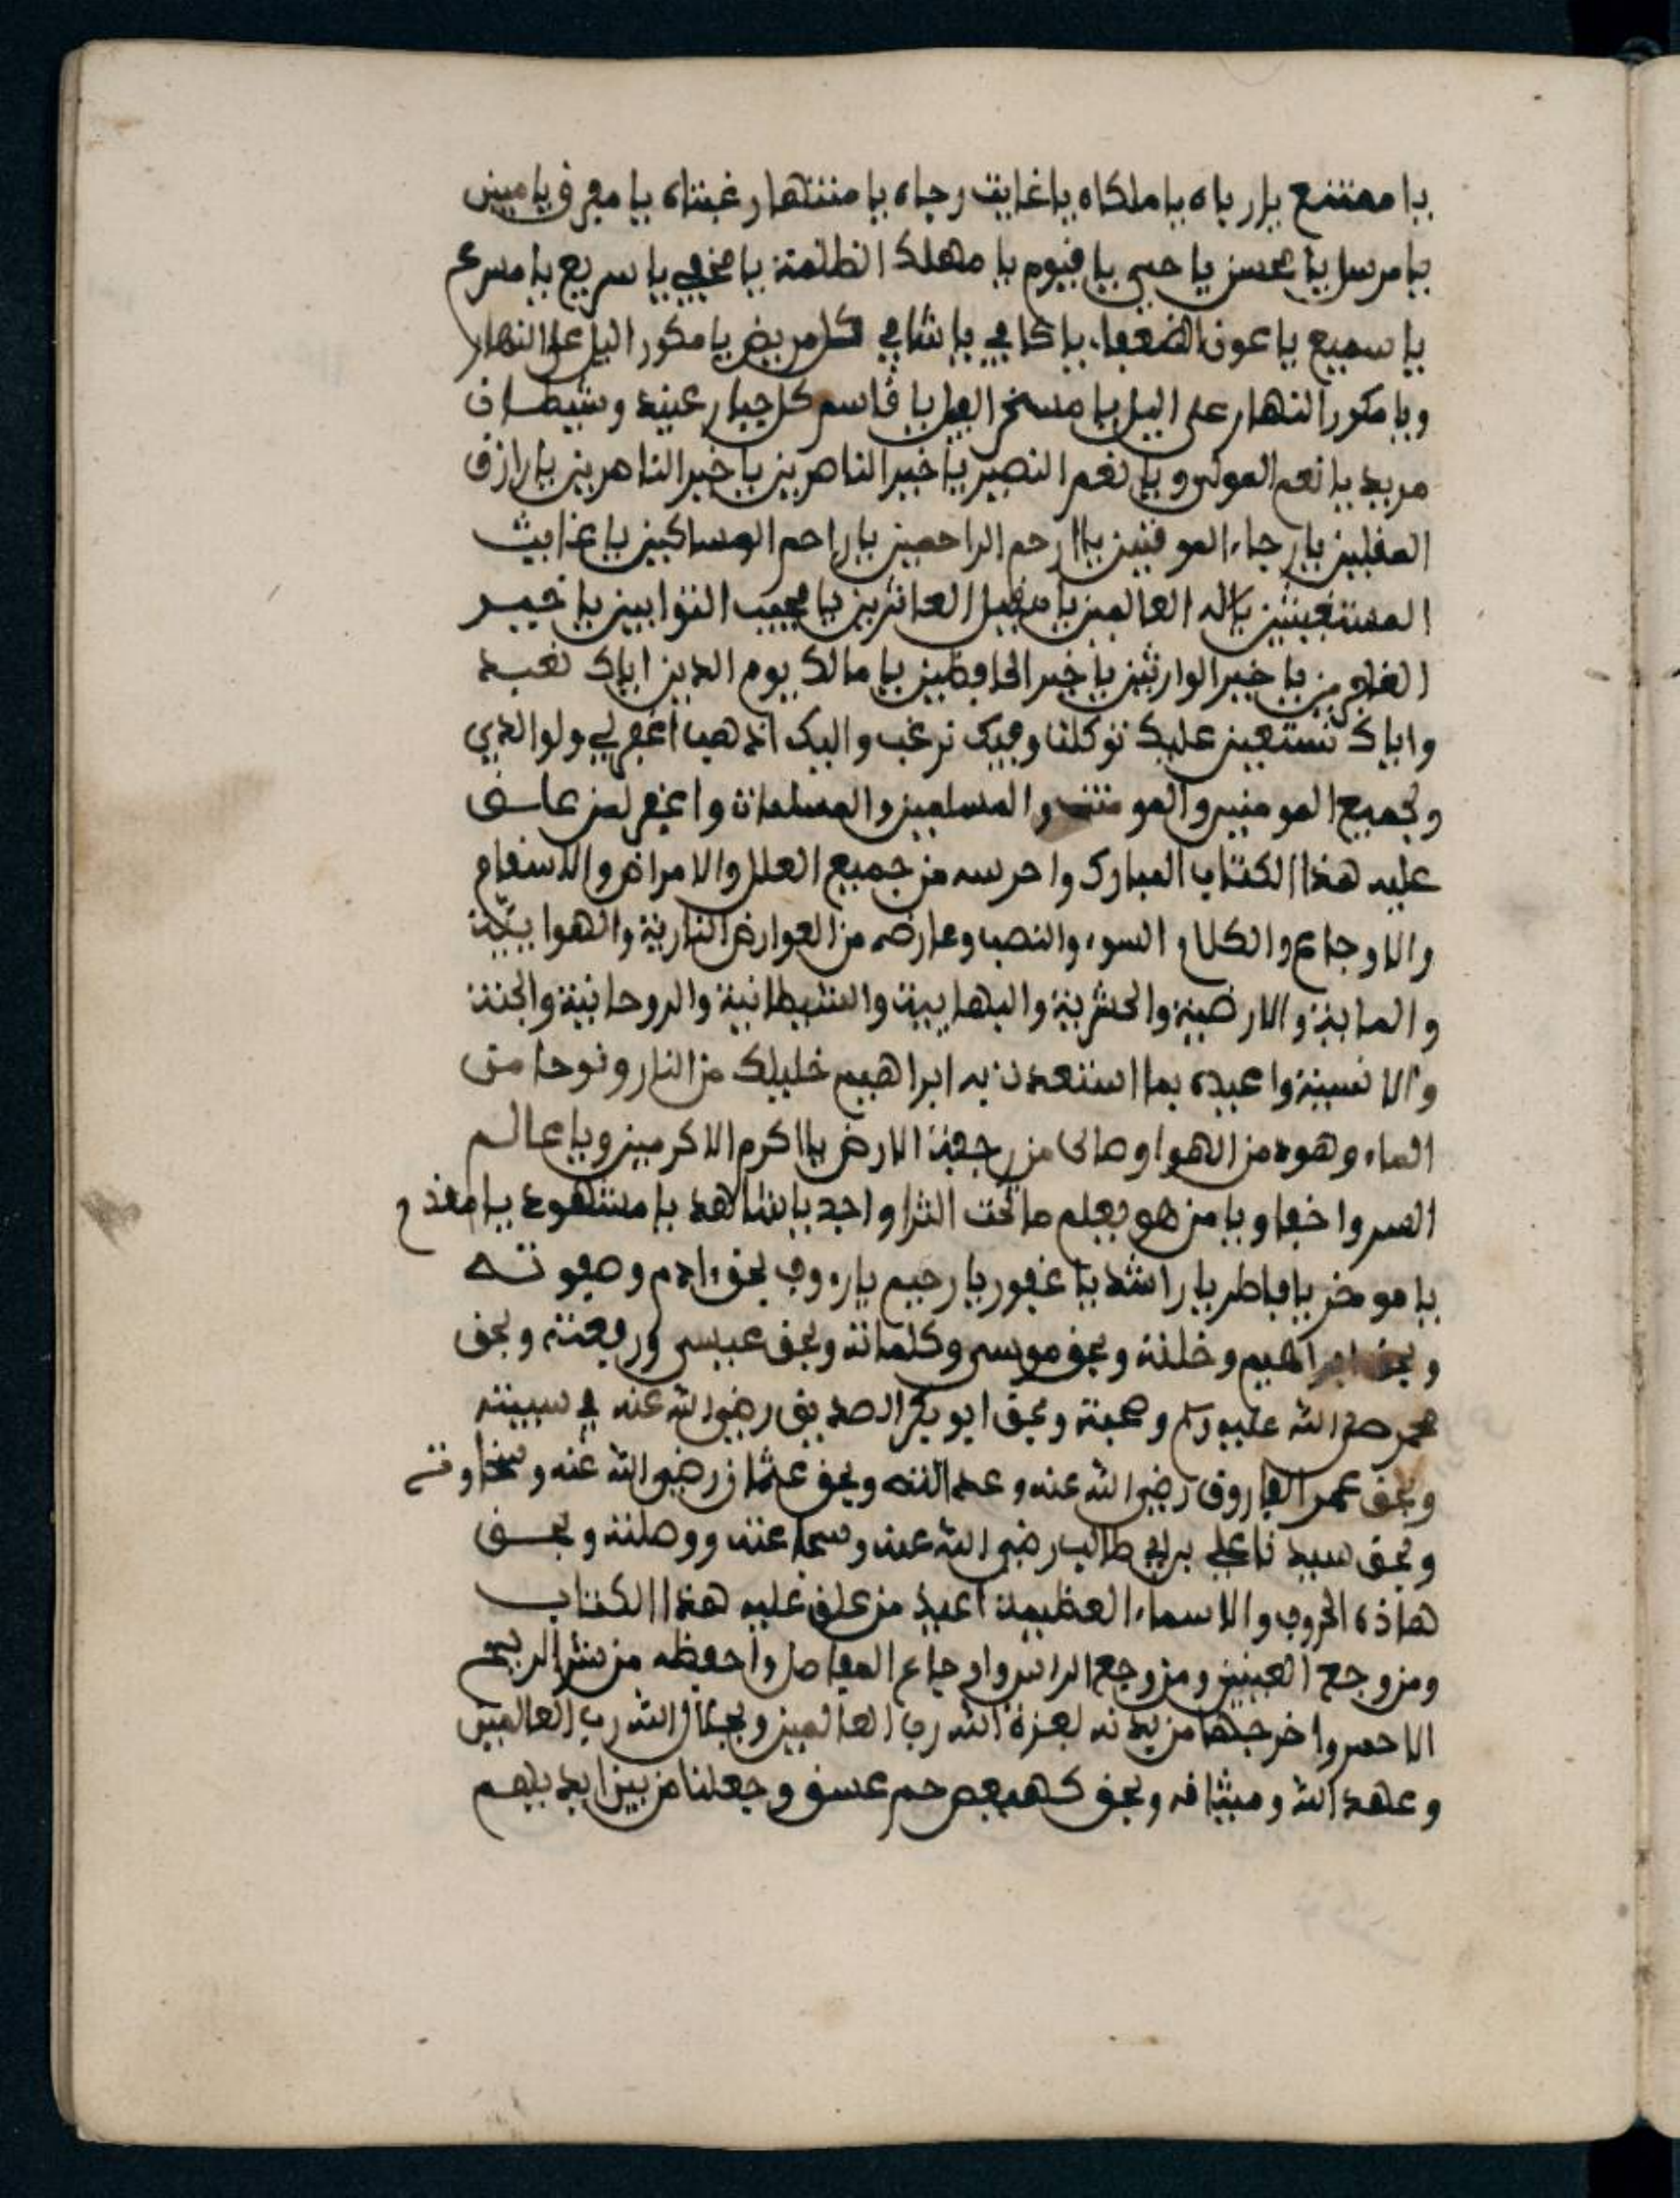 يا ممتنع يا رباه يا ملكاه يا غايت رجاه يا منتهار غبتاه يا مغرق يا مبين
يا مرسل يا محسن يا حي يا قيوم يا مهلك الظلمة يا مخفي يا سريع يا مسرع
يا سميع يا عون الضعفاء يا كافي يا شافي كل مريض يا مكور اليل على النهار
ويا مكور النهار على اليل يا مسخر الفيل يا قاسم كل جبار عنيد وشيطان
مريد يا نعم المولى ويا نعم النصير يا خير الناصرين يا خير الناهرين يا رازق
المقلين يا رجاء الموقنين يا ارحم الراحمين يا راحم المساكين يا غايث
المستغيثين يا اله العالمين يا مقيل العاثرين يا مجيب التوابين يا خير
الغافرين يا خير الوارثين يا خير الحافظين يا مالك يوم الدين اياك نعبد
واياك نستعين عليك توكلنا وفيك نرغب واليك اذهب اغفر لي ولوالدي
ولجميع المومنين والمومنت والمسلمين والمسلمات واغفر لمن علق
عليه هذا الكتاب المبارك واحرسه من جميع العلل والامراض والاسقام
والاوجاع والكلا السوء والنصب وعارضه من العوارض النارية والهواييّة
والمايية والارضية والحشرية والبهايية والشيطانية والروحانية والجنية
والانسية واعيده بما استعدت به ابراهيم خليلك من النار ونوحا من
الماء وهود من الهوا وصالحا من رجفة الارض يا اكرم الاكرمين ويا عالم
السر واخفا ويا من هو يعلم ما تحت الثرا واجد يا شاهد يا مشهود يا مقدم
يا موخر يا فاطر يا راشد يا غفور يا رحيم يا رءوف بحق ءادم وصفوته
وبحق ابراهيم وخلته وبحق موسى وكلماته وبحق عيسى ورفعته وبحق
محمد صلى الله عليه وسلم وهيبته وبحق ابو بكر الصديق رضي الله عنه في سبيته
وبحق عمر الفاروق رضي الله عنه وعدالته وبحق عثمان رضي الله عنه وسخاوته
وبحق سيدنا علي بن ابي طالب رضي الله عنه وشجاعته ووصلته وبحق
هاذه الحروف والاسماء العظيمة اعيذ من علق عليه هذا الكتاب
ومن وجع العينين ومن وجع الراس واوجاع المفاصل واحفظه من شر الريح
الاحمر واخرجها من بدنه لعزة الله رب العالمين وبجلال الله رب العالمين
وعهد الله وميثاقه وبحق كهيعص حم عسق وجعلنا من بين ايديهم